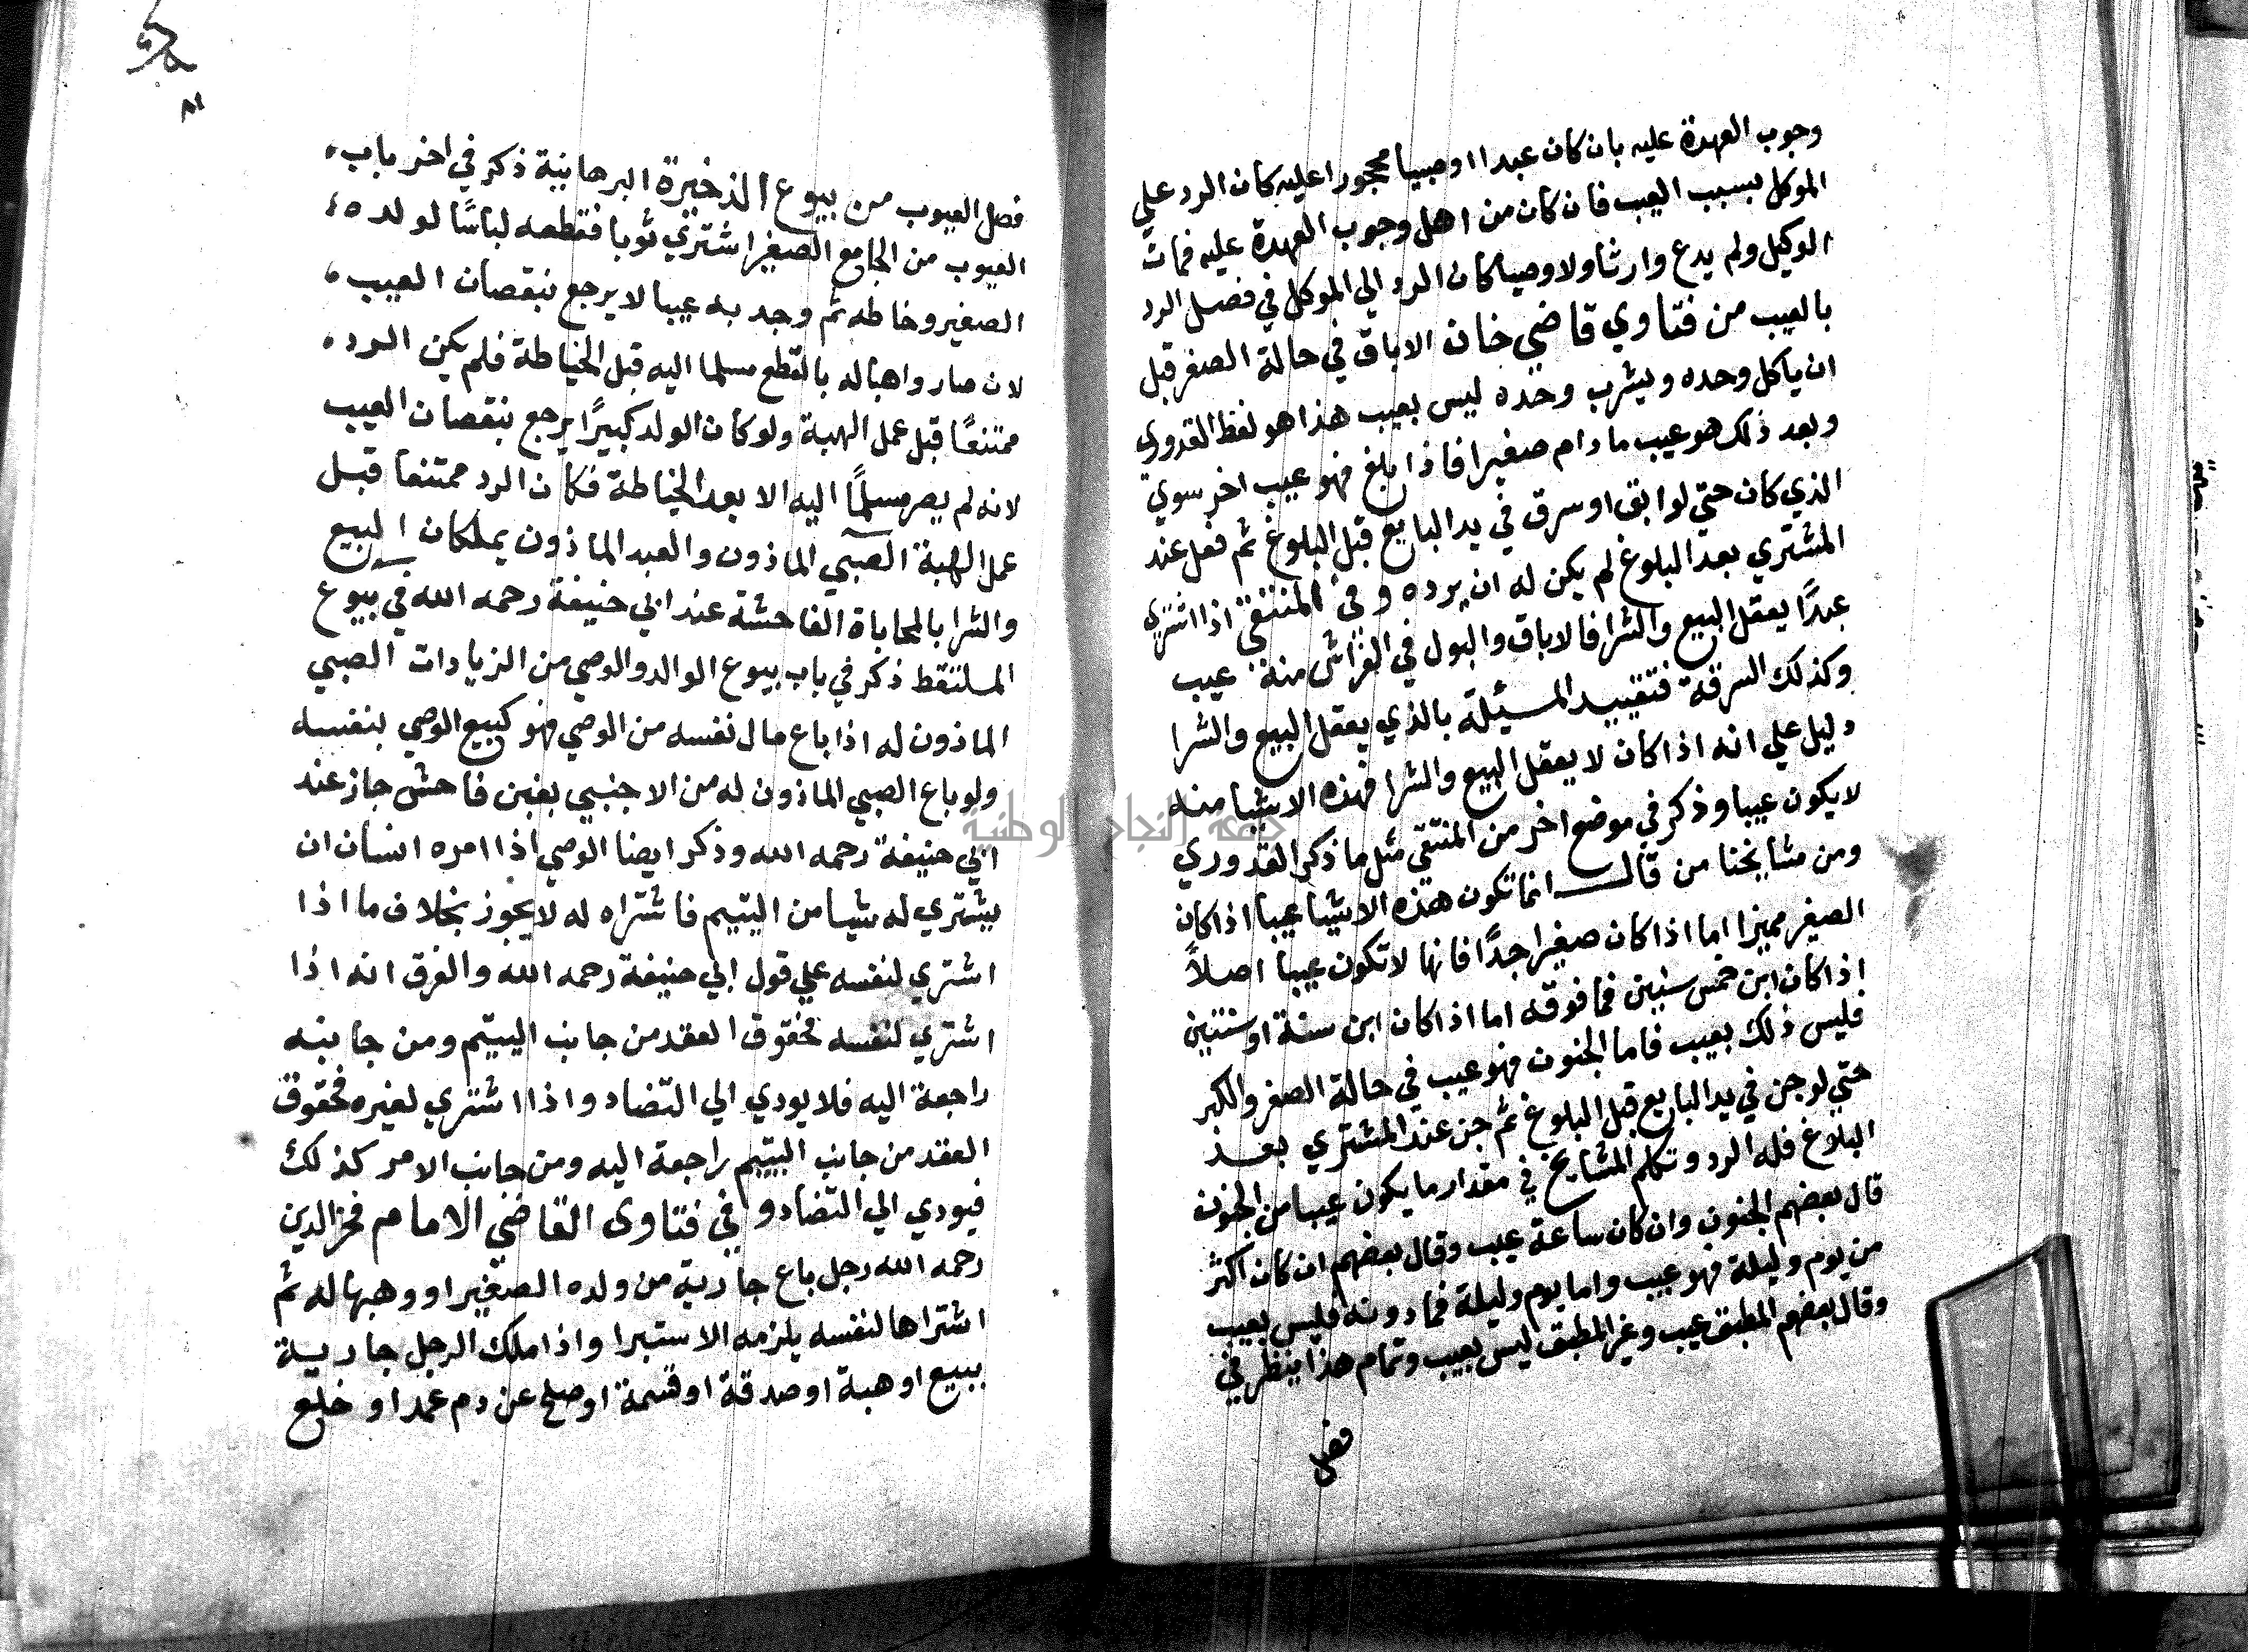 وجوب العهدة عليه بان كان عبدا او صبيا محجورا عليه كان الرد علي
الموكل بسبب العيب فان كان من اهل وجوب العهدة عليه فمات
الوكيل ولم يدع وارثا ولا وصيا كان الرد الي الموكل في فصل الرد
بالعيب من فتاوي قاضي خان الاباق في حالة الصغر قبل
ان ياكل وحده ويشرب وحده ليس بعيب هذا هو لفظ القدوري
وبعد ذلك هو عيب ما دام صغيرا فاذا بلغ فهو عيب اخر سوي
الذي كان حتي لو ابق او سرق في يد البايع قبل البلوغ ثم فعل عند
المشتري بعد البلوغ لم يكن له ان يرده وفي المنتقي اذا اشتري
عبدًا يعقل البيع والشرا فالاباق والبول في الفراش منه عيب
وكذلك السرقة فتقييد المسئلة بالذي يعقل البيع والشرا
دليل علي انه اذا كان لا يعقل البيع والشرا فهذه الاشيا منه
لا يكون عيبا وذكر في موضع اخر من المنتقي مثل ما ذكر القدوري
ومن مشايخنا من قال انما تكون هذه الاشيا عيبا اذا كان
الصغير مميزا اما اذا كان صغيرا جدًا فانها لا تكون عيبا اصلاً
اذا كان ابن خمس سنين فما فوقه اما اذا كان ابن سنة او سنتين
فليس ذلك بعيب فاما الجنون فهو عيب في حالة الصغر والكبر
حتي لو جن في يد البايع قبل البلوغ ثم جن عند المشتري بعد
البلاغ فله الرد وتكلم المشايخ في مقدار ما يكون عيبا من الجنون
قال بعضهم الجنون وان كان ساعة عيب وقال بعضهم ان كان اكثر
من يوم وليلة فهو عيب واما يوم وليلة فما دونه فليس بعيب
وقال بعضهم المطبق عيب وغير المطبق ليس بعيب وتمام هذا ينظر في
فصل
٨٢
فصل العيوب من بيوع الذخيرة البرهانية ذكر في اخر باب
العيوب من الجامع الصغير اشتري ثوبا فقطعه لباسًا لولده
الصغير وخاطه ثم وجد به عيبا لا يرجع بنقصان العيب
لان صار واهبا له بالقطع مسلما اليه قبل الخياطة فلم يكن الرد
ممتنعًا قبل عمل الهبة ولو كان الولد كبيرًا يرجع بنقصان العيب
لانه لم يصر مسلمًا اليه الا بعد الخياطة فكان الرد ممتنعا قبل
عمل الهبة الصبي الماذون والعبد الماذون يملكان البيع
والشرا بالمحاباة الفاحشة عند ابي حنيفة رحمه الله في بيوع
الملتقط ذكر في باب بيوع الوالد والوصي من الزيادات الصبي
الماذون له اذا باع مال نفسه من الوصي فهو كبيع الوصي بنفسه
ولو باع الصبي الماذون له من الاجنبي بغبن فاحش جاز عند
ابي حنيفة رحمه الله وذكر ايضا الوصي اذا امره انسان ان
يشتري له شيا من اليتيم فاشتراه له لا يجوز بخلاف ما اذا
اشتري لنفسه علي قول ابي حنيفة رحمه الله والفرق انه اذا
اشتري لنفسه فحقوق العقد من جانب اليتيم ومن جانبه
راجعة اليه فلا يودي الي التضاد واذا اشتري لغيره فحقوق
العقد من جانب اليتيم راجعة اليه ومن جانب الامر كذلك
فيودي الي التضاد وفي فتاوى القاضي الامام فخر الدين
رحمه الله رجل باع جارية من ولده الصغير او وهبها له ثم
اشتراها لنفسه يلزمه الاستبرا واذا ملك الرجل جارية
ببيع او هبة او صدقة او قسمة او صلح عن دم عمد او خلع
جامعة النجاح الوطنية